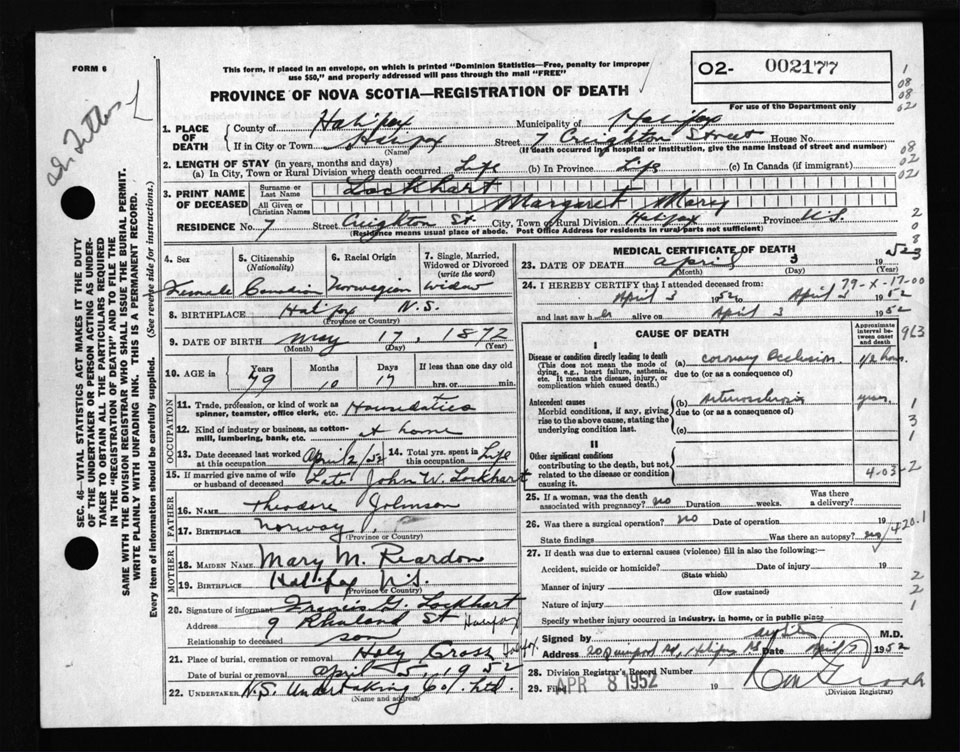 FORM 6
This form, if placed in an envelope, on which is printed "Dominion Statistics—Free, penalty for improper
use $50," and properly addressed will pass through the mail "FREE"
O2- 002177
For use of the Department only
PROVINCE OF NOVA SCOTIA—REGISTRATION OF DEATH
1. PLACE OF DEATH County of Halifax Municipality of Halifax
If in City or Town Halifax (Name) Street 7 Creighton Street House No.
(If death occurred in hospital or institution, give the name instead of street and number)
2. LENGTH OF STAY (in years, months and days)
(a) In City, Town or Rural Division where death occurred Life (b) In Province Life (c) In Canada (if immigrant)
3. PRINT NAME OF DECEASED Surname or Last Name Lockhart
All Given or Christian Names Margaret Mary
RESIDENCE No. 7 Street Creighton St. City, Town or Rural Division Halifax Province N.S.
(Residence means usual place of abode. Post Office Address for residents in rural parts not sufficient)
4. Sex Female
5. Citizenship (Nationality) Canadian
6. Racial Origin Norwegian
7. Single, Married, Widowed or Divorced (write the word) Widow
8. BIRTHPLACE Halifax N.S.
(Province or Country)
9. DATE OF BIRTH May 17, 1872
(Month) (Day) (Year)
10. AGE in Years 79 Months 10 Days 17 If less than one day old hrs. or min.
OCCUPATION
11. Trade, profession, or kind of work as spinner, teamster, office clerk, etc.
12. Kind of industry or business, as cotton-mill, lumbering, bank, etc. at home
13. Date deceased last worked at this occupation April 2/52 14. Total yrs. spent in this occupation Life
15. If married give name of wife or husband of deceased Late John W. Lockhart
FATHER
16. Name Theodore Johnson
17. Birthplace Norway
(Province or Country)
MOTHER
18. Maiden Name Mary M. Reardon
19. Birthplace Halifax N.S.
(Province or Country)
20. Signature of informant Francis G. Lockhart
Address 9 St Halifax
Relationship to deceased son
21. Place of burial, cremation or removal Holy Cross Halifax
Date of burial or removal April 5, 1952
22. Undertaker N.S. Undertaking Co. Ltd.
(Name and Address)
MEDICAL CERTIFICATE OF DEATH
23. DATE OF DEATH April 3 1952
(Month) (Day) (Year)
24. I HEREBY CERTIFY that I attended deceased from
April 3 1952 to April 3 1952
and last saw her alive on April 3 1952
CAUSE OF DEATH
Approximate interval between onset and death
I
Disease or condition directly leading to death (a) coronary occlusion 1/2 hour.
(This does not mean the mode of dying, e.g., heart failure, asthenia, etc. It means the disease, injury, or complication which caused death.)
due to (or as a consequence of)
Antecedent causes (b) Arteriosclerosis years.
Morbid conditions, if any, giving rise to the above cause, stating the underlying condition last.
due to (or as a consequence of)
(c)
II
Other significant conditions
contributing to the death, but not related to the disease or condition causing it.
4-03-2
25. If a woman, was the death associated with pregnancy? no Duration weeks. Was there a delivery?
26. Was there a surgical operation? no Date of operation 19
State findings Was there an autopsy? no
420.1
27. If death was due to external causes (violence) fill in also the following:—
Accident, suicide or homicide? Date of injury 19
(State which)
Manner of injury
(How sustained)
Nature of injury
Specify whether injury occurred in industry, in home, or in public place
Signed by M.D.
Address Halifax Date April 5 1952
28. Division Registrar's Record Number
29. Filed APR 8 1952 19
(Division Registrar)
SEC. 46—VITAL STATISTICS ACT MAKES IT THE DUTY
OF THE UNDERTAKER OR PERSON ACTING AS UNDER-
TAKER TO OBTAIN ALL THE PARTICULARS REQUIRED
IN THE "REGISTRATION OF DEATH" AND TO FILE THE
SAME WITH THE DIVISION REGISTRAR WHO SHALL ISSUE THE BURIAL PERMIT.
WRITE PLAINLY WITH UNFADING INK. THIS IS A PERMANENT RECORD.
Every item of information should be carefully supplied. (See reverse side for instructions.)